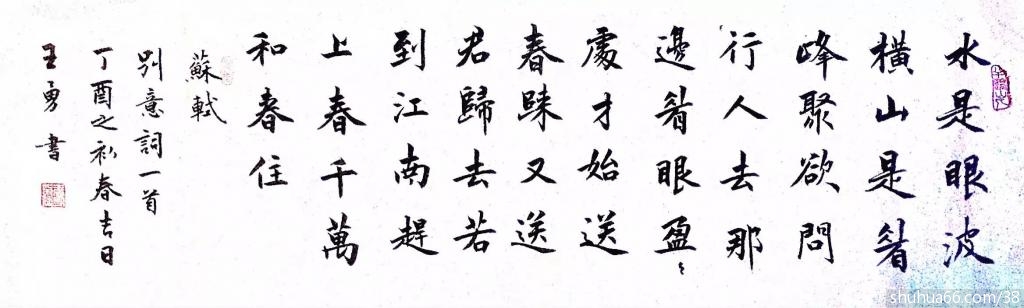 水是眼波
橫山是眉
峰聚欲問
行人去那
邊眉眼盈々
處才始送
春歸又送
君歸去若
到江南趕
上春千萬
和春住
蘇軾
別意詞一首
丁酉之初春吉日
王勇書
shuhua66.com/38